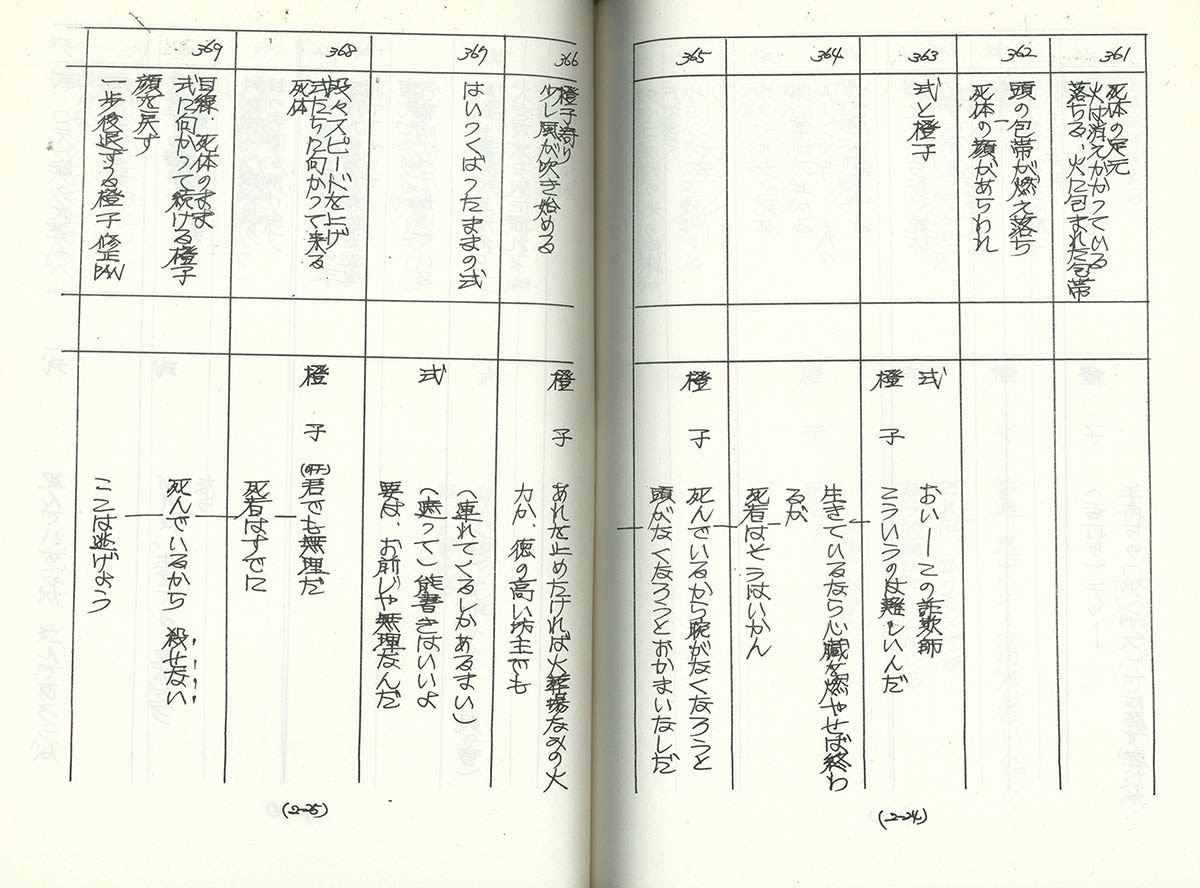 361
死体の足元
火は消えかかっている
落ちる、火に包まれた包帯
362
頭の包帯が燃え落ち
死体の顔があらわれ
363
式と橙子
式 おいーこの詐欺師
橙子 こういうのは難しいんだ
364
生きているなら心臓を燃やせば終わ
るが
死者はそうはいかん
365
橙子 死んでいるから腕がなくなろうと
頭がなくなろうとおかまいなしだ
(2-24)
366
橙子寄り
少し風が吹き始める
橙子 あれを止めたければ火葬場なみの火
力か、徳の高い坊主でも
367
はいつくばったままの式
(連れてくるしかあるまい)
式 (遮って)能書きはいいよ
要は、お前じゃ無理なんだ
368
段々スピードを上げ
式たちに向かって来る
死体
橙子 (OFF)君でも無理だ
死者はすでに
369
目線、死体のまま
式に向かって続ける橙子
顔を戻す
一歩後退する橙子 修正PAN
死んでいるから 殺せない
ここは逃げよう
(2-25)